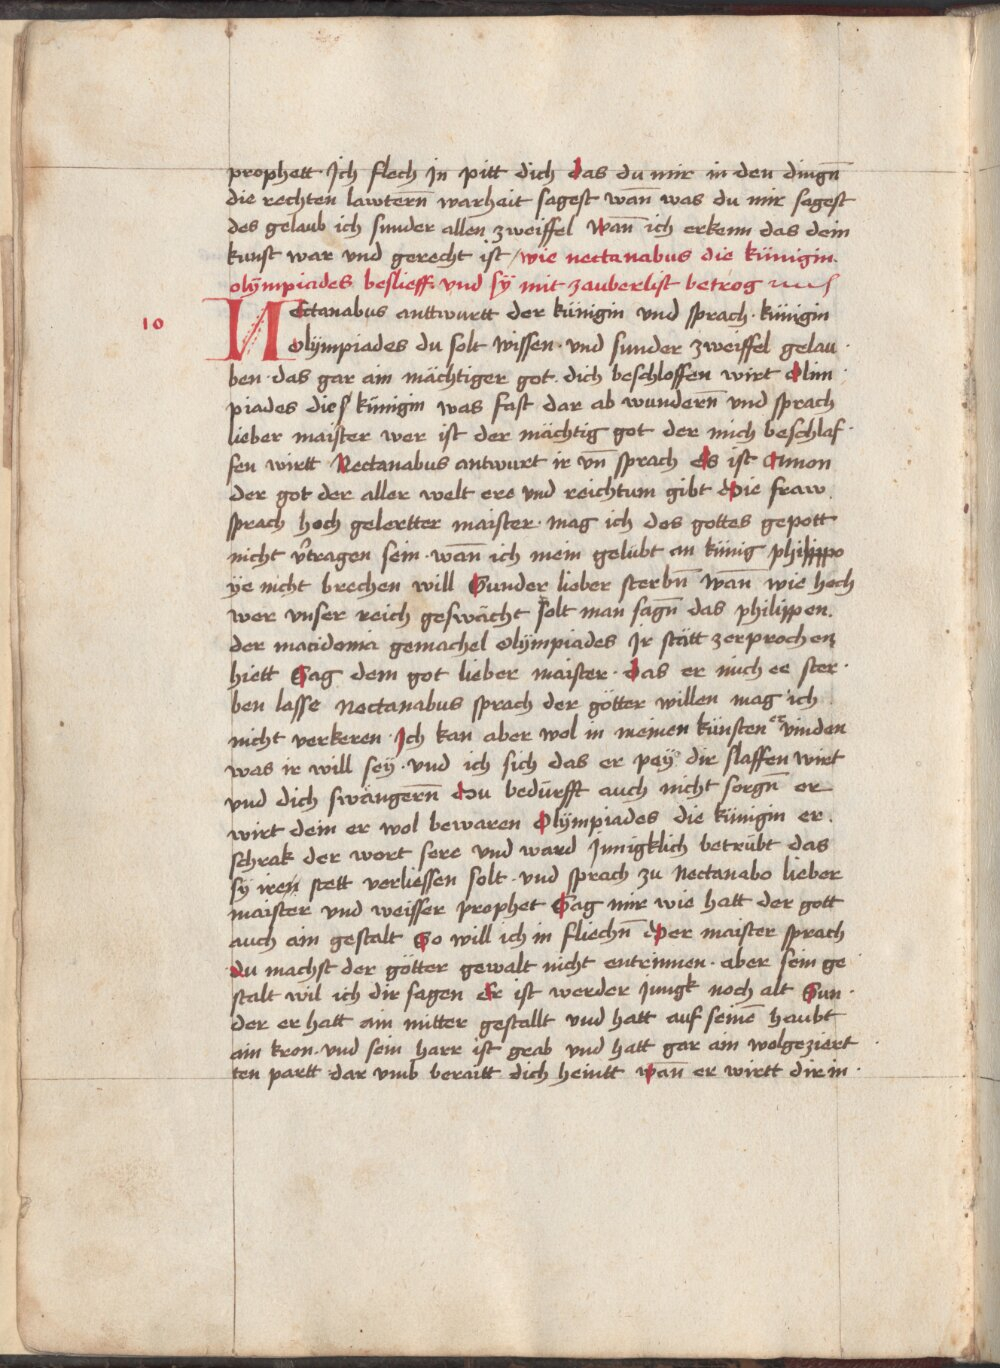 prophett · Ich flech In pitt dich das du mir in den dingn̄
die rechten lawtern̄ warheit sagest wan̄ was du mir sagest
des gelaub ich sunder allen zweiffel wan̄ ich erkenn das dein
kunst war und gerecht ist / wie nectanabus die künigin ·
olÿmpiades beslieff · und sÿ mit zauberlist betrog
10
NEctanabus anttwurtt der künigin und sprach · künigin
Olÿmpiades du solt wissen · und sunder zweiffel gelau ·
ben · das gar ain mächtiger got · dich beschloffen wirt Olim ·
piades die künigin was fast dar ab wundern̄ und sprach
lieber maister wer ist der mächtig got der mich beschlaf ·
fen wirtt Nectanabus antwurt ir vn̄ sprach Es ist Amon
der got der aller welt ere und reichtum gibt Die fraw
sprach hoch gelertter maister · mag ich des gottes gepott
nicht v̄tragen sein · wan̄ ich mein gelübt an künig philippo
ÿe nicht brechen will Sunder lieber sterbn̄ wan̄ wie hoch
wer vnser reich geswächt solt man sagn̄ das philippen ·
der macidonia gemachel Olÿmpiades Ir stätt zerprochen
hiett Sag dem got lieber maister · das er mich ee ster ·
ben lasse Nectanabus sprach der götter willen mag ich
nicht verkeren · Ich kan aber wol in meinen künsten er vinden
was ir will seÿ · und ich sich das er peÿ dir slaffen wirt
und dich swängern̄ Du bedürfft auch nicht sorgn̄ er
wirt dein er wol bewaren Olÿmpiades die künigin er ·
schrak der wort sere und ward Innigklich betrübt das
sÿ iren stett verliessen solt · und sprach zu Nectanabo lieber
maister und weisser prophet Sag mir wie hatt der gott
auch ain gestalt So will ich in fliechn̄ Der maister sprach
du machst der götter gewalt nicht entrinnen · aber sein ge
stalt wil ich dir sagen Er ist werder Jungk noch alt Sun ·
der er hatt ain mitter gestallt und hatt auf seinē haubt
ain kron · und sein harr ist grab und hatt gar ain wolgeziert
ten partt dar umb beraitt dich heintt wan̄ er wirtt dir in ·